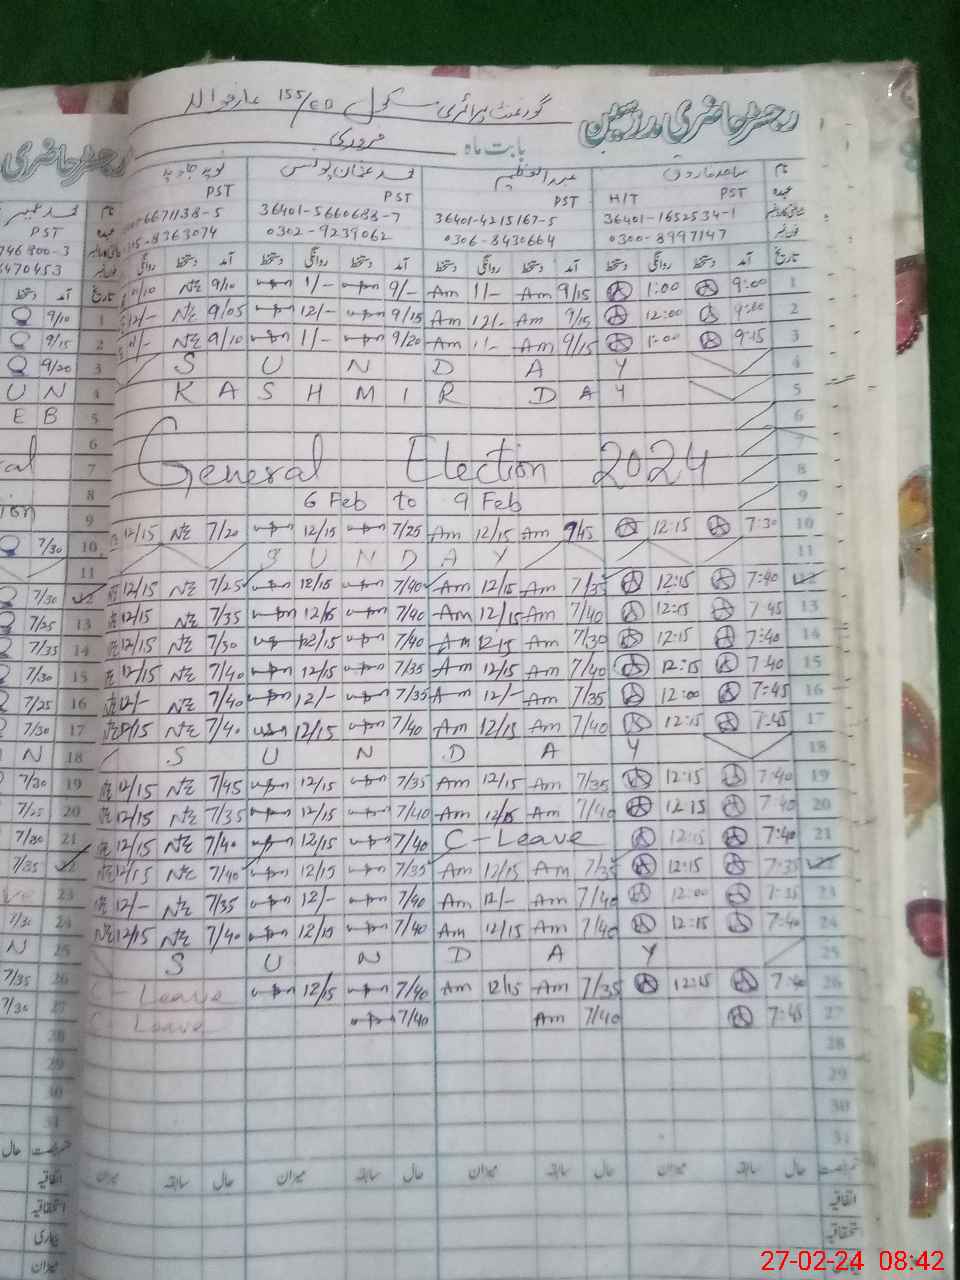 رجسٹر حاضری مدرسین
گورنمنٹ پرائمری سکول 155/EB عارفوالہ
بابت ماہ فروری
نام ساجد فاروق عبدالعظیم محمد عثمان یونس نوید جاوید
عہدہ PST H/T PST PST PST
36401-1652534-1 36401-4215167-5 36401-5660688-7 6671138-5
0300-8997147 0306-8430664 0302-9239062 8363074
تاریخ آمد دستخط روانگی دستخط آمد دستخط روانگی دستخط آمد دستخط روانگی دستخط آمد دستخط روانگی
9/10 1/- 9/- Am 1/- Am 9/15 1:00 9:00 1
12/- 9/05 12/- 9/15 Am 12/- Am 9/15 12:00 2
9/10 1/- 9/20 Am 1/- Am 9/15 1:00 9:15 3
S U N D A Y 4
K A S H M I R D A Y 5
6
7
General Election 2024 8
6 Feb to 9 Feb 9
12/15 7/20 12/15 7/25 Am 12/15 Am 7/45 12:15 7:30 10
S U N D A Y 11
12/15 7/25 12/15 7/40 Am 12/15 Am 7/35 12:15 7:40 12
12/15 7/35 12/15 7/40 Am 12/15 Am 7/40 12:15 7:45 13
12/15 7/30 12/15 7/40 Am 12/15 Am 7/30 12:15 7:40 14
12/15 7/40 12/15 7/35 Am 12/15 Am 7/40 12:15 7:40 15
12/- 7/40 12/- 7/35 Am 12/- Am 7/35 12:00 7:45 16
12/15 7/40 12/15 7/40 Am 12/15 Am 7/40 12:15 7:45 17
S U N D A Y 18
12/15 7/45 12/15 7/35 Am 12/15 Am 7/35 12:15 7:40 19
12/15 7/35 12/15 7/40 Am 12/15 Am 7/40 12:15 7:40 20
12/15 7/40 12/15 7/40 C-Leave 12:15 7:40 21
12/15 7/40 12/15 7/35 Am 12/15 Am 7/35 12:15 7:35 22
12/- 7/35 12/- 7/40 Am 12/- Am 7/40 12:00 7:35 23
12/15 7/40 12/15 7/40 Am 12/15 Am 7/40 12:15 7:40 24
S U N D A Y 25
C-Leave 12/15 7/40 Am 12/15 Am 7/35 12:15 7:40 26
C-Leave 7/40 Am 7/40 7:45 27
28
29
30
31
رخصت حال سابقہ میزان حال سابقہ میزان حال سابقہ میزان
اتفاقیہ
استحقاقیہ
بیماری
میزان
رجسٹر حاضری
نام
PST
746800-3
6470453
تاریخ آمد دستخط
9/10 1
9/15 2
9/20 3
U N 4
E B 5
6
7
8
9
7/30 10
11
7/30 12
7/25 13
7/35 14
7/30 15
7/25 16
7/30 17
N 18
7/30 19
7/25 20
7/30 21
7/35 22
23
7/30 24
N 25
7/35 26
7/30 27
28
29
30
31
رخصت حال
اتفاقیہ
استحقاقیہ
بیماری
میزان
27-02-24 08:42